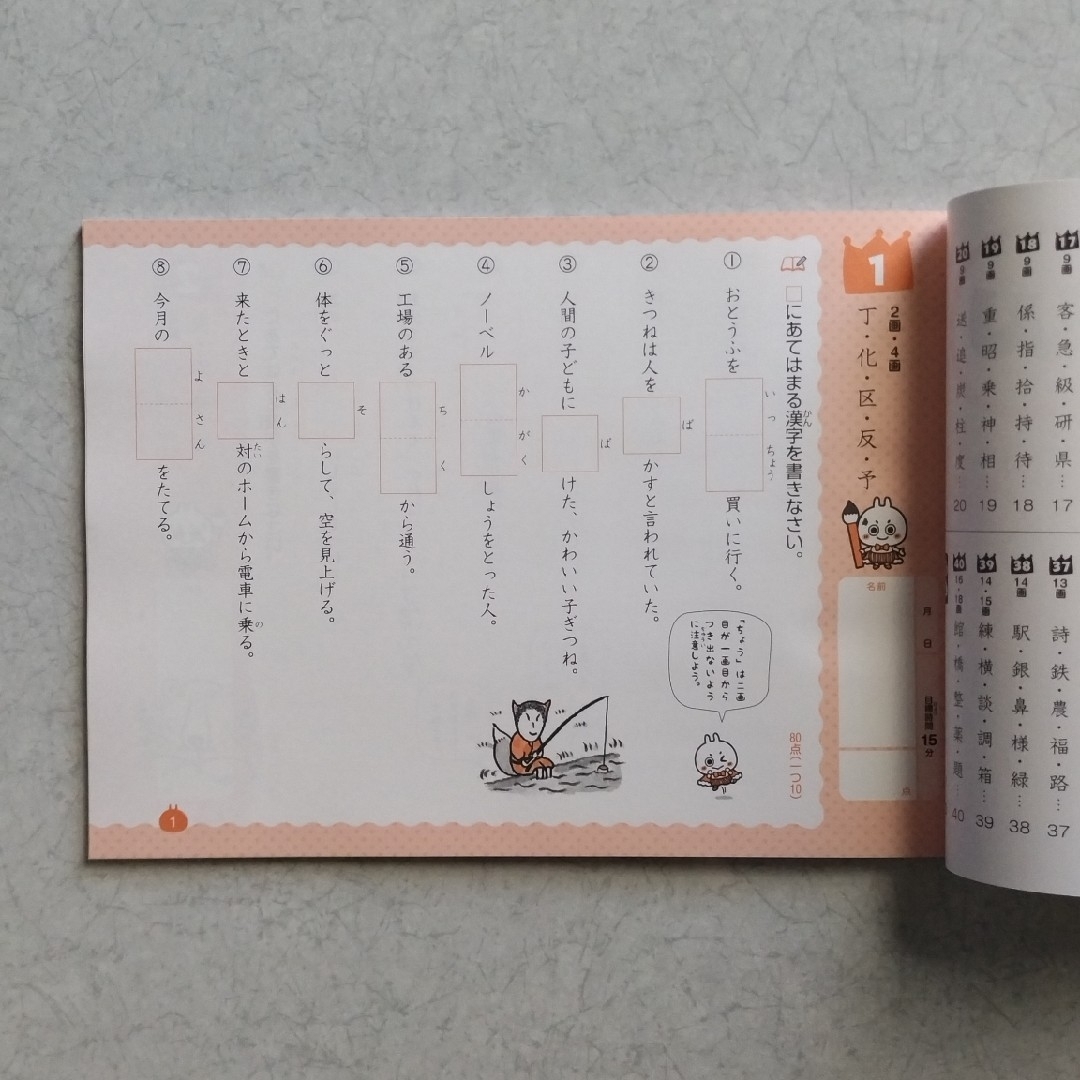 17
9画
客・急・級・研・県…
17
18
9画
係・指・拾・持・待…
18
19
9画
重・昭・乗・神・相…
19
20
9画
送・追・炭・柱・度…
20
37
13画
詩・鉄・農・福・路…
37
38
14画
駅・銀・鼻・様・緑…
38
39
14・15画
練・横・談・調・箱…
39
40
16・18画
館・橋・整・薬・題…
40
1
2画・4画
丁・化・区・反・予
月 日
目標時間 15分
名前
点
□にあてはまる漢字を書きなさい。
かん
80点(一つ10)
① おとうふを 買いに行く。
いっちょう
「ちょう」は二画
目が一画目から
つき出ないよう
に注意しよう。
ちゅうい
② きつねは人を かすと言われていた。
ば
③ 人間の子どもに けた、かわいい子ぎつね。
ば
④ ノーベル しょうをとった人。
かがく
⑤ 工場のある から通う。
ちく
⑥ 体をぐっと らして、空を見上げる。
そ
⑦ 来たときと 対のホームから電車に乗る。
はん たい の
⑧ 今月の をたてる。
よさん
1